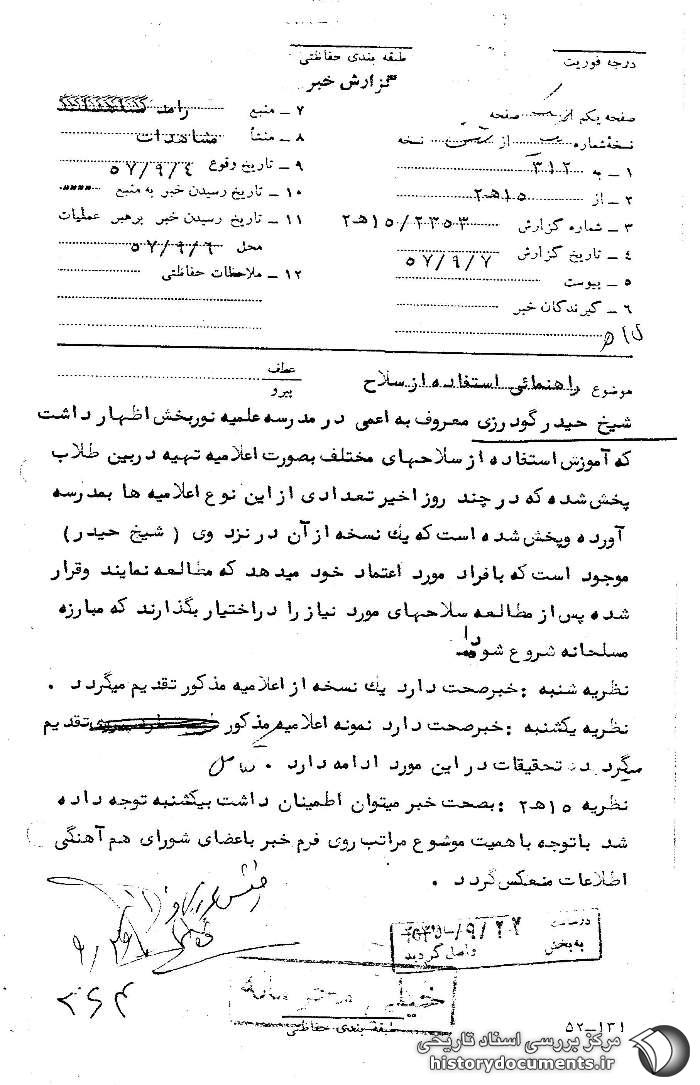 درجه فوریت
طبقه بندی حفاظتی
گزارش خبر
صفحه یکم از صفحه
نسخه شماره از نسخه
۱ ـ به ۳۱۲
۲ ـ از ۱۵هـ۲
۳ ـ شماره گزارش ۱۵/۲۳۵۳هـ۲
۴ ـ تاریخ گزارش ۵۷/۹/۷
۵ ـ پیوست
۶ ـ گیرندگان خبر
۷ ـ منبع
۸ ـ منشأ مشاهدات
۹ ـ تاریخ وقوع ۵۷/۹/۴
۱۰ ـ تاریخ رسیدن خبر به منبع
۱۱ ـ تاریخ رسیدن خبر برهبر عملیات
محل ۵۷/۹/۶
۱۲ ـ ملاحظات حفاظتی
موضوع راهنمائی استفاده از سلاح
عطف
پیرو
شیخ حیدر گودرزی معروف به اعمی در مدرسه علمیه نوربخش اظهار داشت
که آموزش استفاده از سلاحهای مختلف بصورت اعلامیه تهیه دربین طلاب
پخش شده که در چند روز اخیر تعدادی از این نوع اعلامیه ها بمدرسه
آورده وپخش شده است که یك نسخه از آن در نزد وی ( شیخ حیدر)
موجود است که بافراد مورد اعتماد خود میدهد که مطالعه نمایند وقرار
شده پس از مطالعه سلاحهای مورد نیاز را دراختیار بگذارند که مبارزه
مسلحانه شروع شود
نظریه شنبه : خبرصحت دارد یك نسخه از اعلامیه مذکور تقدیم میگردد .
نظریه یکشنبه : خبرصحت دارد نمونه اعلامیه مذکور تقدیم
میگردد تحقیقات در این مورد ادامه دارد .
نظریه ۱۵هـ۲ : بصحت خبر میتوان اطمینان داشت بیکشنبه توجه داده
شد باتوجه باهمیت موضوع مراتب روی فرم خبر باعضای شورای هم آهنگی
اطلاعات منعکس گردد .
درساعت
به بخش
/۹/۲۲
واصل گردید
خیلی محرمانه
طبقه بندی حفاظتی
۵۲ــ۱۳۱
مرکز بررسی اسناد تاریخی
historydocuments.ir